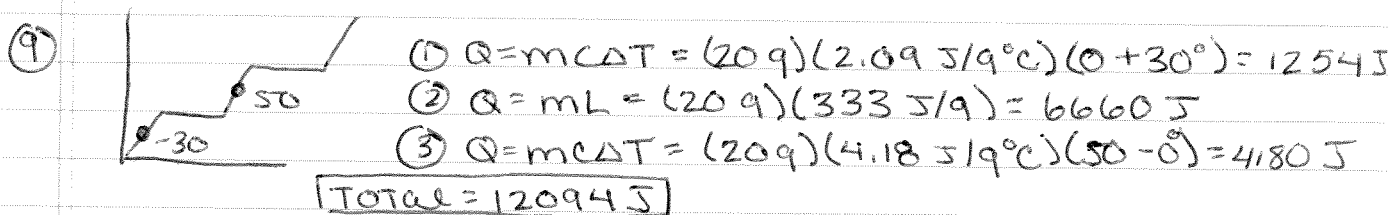 ⑨
① Q=mCΔT = (20g)(2.09 J/g°C)(0+30°)=1254J
50
② Q = mL = (20g)(333 J/g) = 6660 J
-30
③ Q=mCΔT = (20g)(4.18 J/g°C)(50-0°)=4180 J
TOTAL = 12094 J